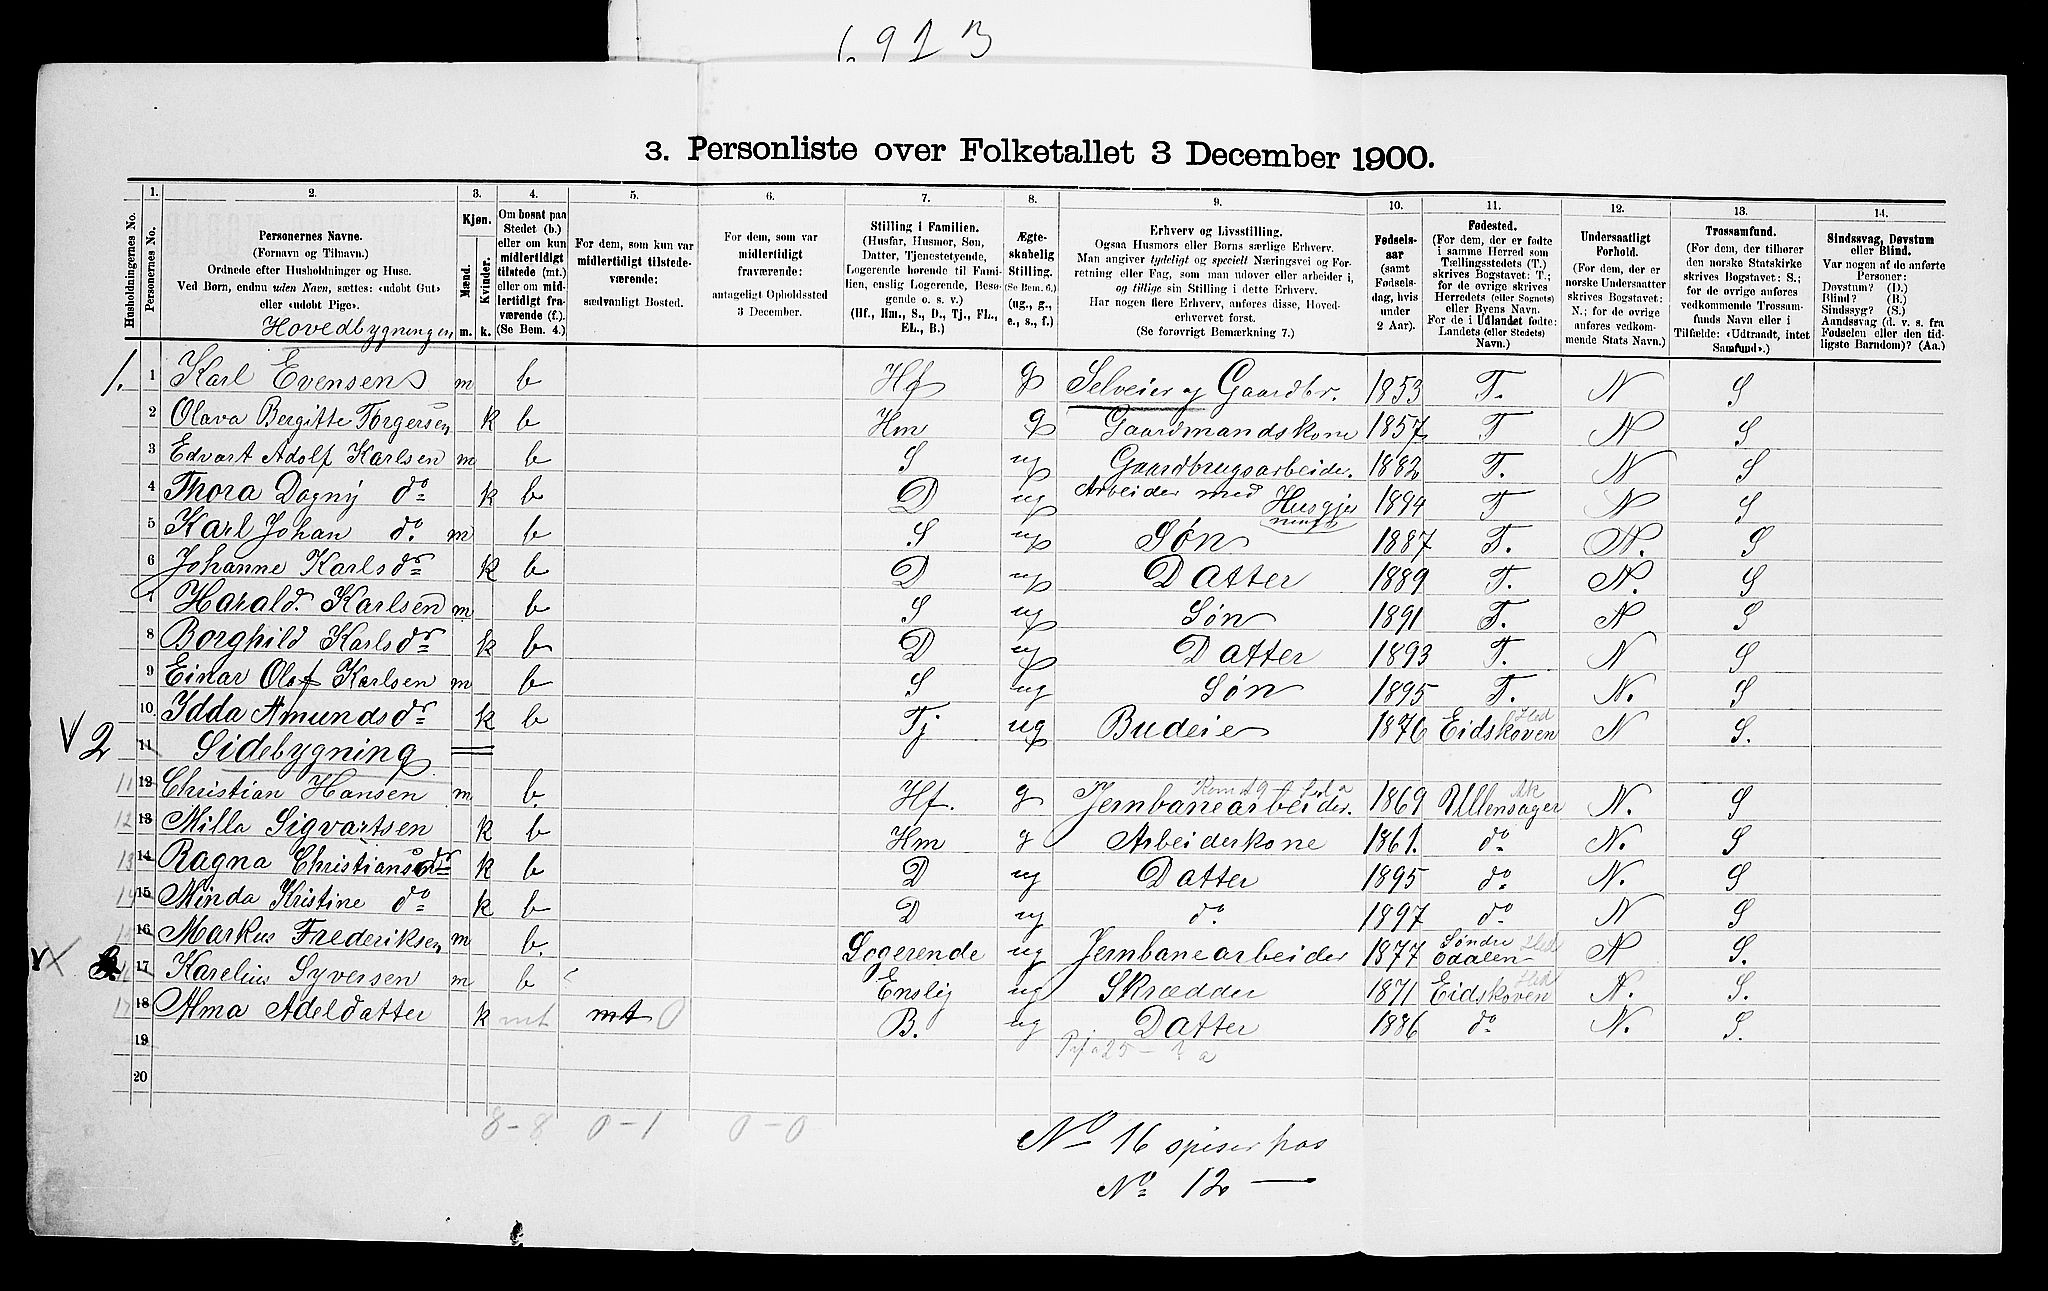 6923
3. Personliste over Folketallet 3 December 1900.
1. 2. 3. 4. 5. 6. 7. 8. 9. 10. 11. 12. 13. 14.
Husholdningernes No.
Personernes No.
Personernes Navne.
(Fornavn og Tilnavn.)
Ordnede efter Husholdninger og Huse.
Ved Børn, endnu uden Navn, sættes: «udøbt Gut»
eller «udøbt Pige».
Hovedbygningen
Kjøn.
Mænd. Kvinder.
m. k.
Om bosat paa
Stedet (b.)
eller om kun
midlertidigt
tilstede (mt.)
eller om mid-
lertidigt fra-
værende (f.).
(Se Bem. 4.)
For dem, som kun var
midlertidigt tilstede-
værende:
sædvanligt Bosted.
For dem, som var
midlertidigt
fraværende:
antageligt Opholdssted
3 December.
Stilling i Familien.
(Husfar, Husmor, Søn,
Datter, Tjenestetyende,
Logerende hørende til Fami-
lien, enslig Logerende, Besø-
gende o. s. v.)
(Hf., Hm., S., D., Tj., FL.,
EL., B.)
Ægte-
skabelig
Stilling.
(Se Bem. 6.)
(ug., g.,
e., s., f.)
Erhverv og Livsstilling.
Ogsaa Husmors eller Børns særlige Erhverv.
Man angiver tydeligt og specielt Næringsvei og For-
retning eller Fag, som man udover eller arbeider i,
og tillige sin Stilling i dette Erhverv.
Har nogen flere Erhverv, anføres disse, Hoved-
erhvervet forst.
(Se forøvrigt Bemærkning 7.)
Fødsels-
aar
(samt
Fødsels-
dag, hvis
under
2 Aar).
Fødested.
(For dem, der er fødte
i samme Herred som
Tællingsstedets (T.)
skrives Bogstavet: T.;
for de øvrige skrives
Herredets (eller Sognets)
eller Byens Navn.
For de i Udlandet fødte:
Landets (eller Stedets)
Navn.)
Undersaatligt
Forhold.
(For dem, der er
norske Undersaatter
skrives Bogstavet:
N.; for de øvrige
anføres vedkom-
mende Stats Navn.)
Trossamfund.
(For dem, der tilhører
den norske Statskirke
skrives Bogstavet: S.;
for de øvrige anføres
vedkommende Trossam-
funds Navn eller i
Tilfælde: «Udtraadt, intet
Samfund».)
Sindssvag, Døvstum
eller Blind.
Var nogen af de anførte
Personer:
Døvstum? (D.)
Blind? (B.)
Sindssyg? (S.)
Aandssvag (d. v. s. fra
Fødselen eller den tid-
ligste Barndom)? (Aa.)
1. 1 Karl Evensen m b Hf g Selveier og Gaardbr. 1853 T. N S
2 Olava Bergitte Torgersen k b Hm g Gaardmandskone 1857 T N S
3 Edvart Adolf Karlsen m b S ug Gaardbrugsarbeider. 1882 T. N S
4 Thora Dagny do k b D ug Arbeider med Husgjerninger 1894 T N S
5 Karl Johan do. m b S ug Søn 1887 T. N. S
6 Johanne Karlsdr k b D ug Datter 1889 T. N. S
7 Harald Karlsen m b S ug Søn 1891 T. N S
8 Borghild Karlsdr k b D ug Datter 1893 T. N S
9 Einar Olaf Karlsen m b S ug Søn 1895 T. N. S
10 Idda Amundsdr k b Tj ug Budeie 1876 Eidskoven Hed N S.
V 2 11 Sidebygning
11 12 Christian Hansen m b. Hf. g Jernbanearbeider. 1869 Ullensager Ak N. S
12 13 Milla Sigvartsen k b Hm g Arbeiderkone 1861. do N. S
13 14 Ragna Christiansdr k b D ug Datter 1895 do N. S
14 15 Minda Kristine do k b D ug do 1897 do N S
16 Markus Frederiksen m b. Logerende ug Jernbanearbeider 1877 Søndre Odalen Hed N S.
17 Karelius Syversen m b Enslig ug Skrædder 1871 Eidskoven Hed N. S.
17 18 Alma Adeldatter k mt mt 0 B. ug Datter 1886 do N. S.
19
20
8 - 8 0 - 1 0 - 0
No 16 spiser hos
No 12 —